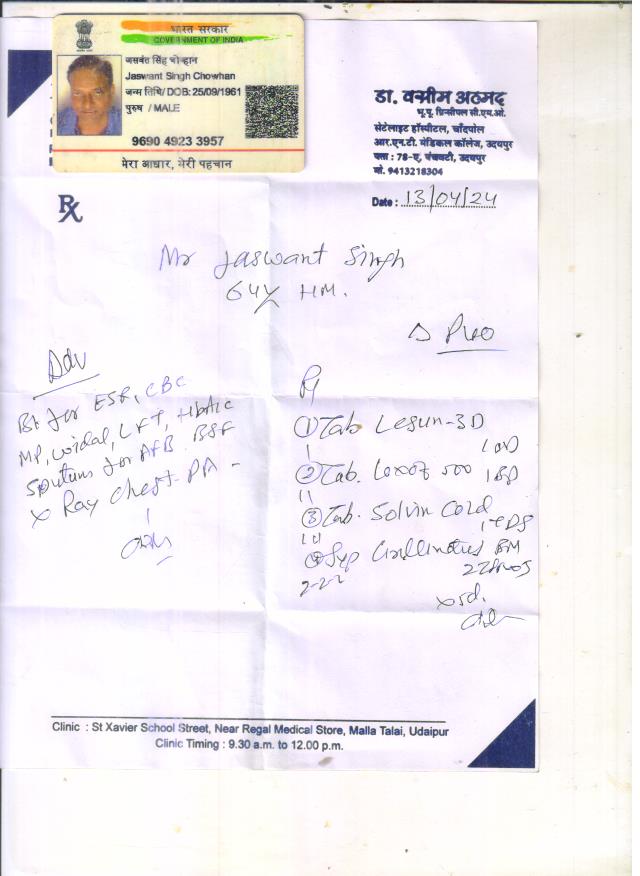 भारत सरकार
GOVERNMENT OF INDIA
जसवंत सिंह चौहान
Jaswant Singh Chowhan
जन्म तिथि/ DOB: 25/09/1961
पुरुष / MALE
9690 4923 3957
मेरा आधार, मेरी पहचान
डा. वसीम अहमद
भू.पू. प्रिन्सीपल सी.एम.ओ.
सेटेलाइट हॉस्पीटल, चाँदपोल
आर.एन.टी. मेडिकल कॉलेज, उदयपुर
पता : 78-ए, पंचवटी, उदयपुर
मो. 9413218304
Rx
Date : 13/04/24
Mr Jaswant Singh
64y HM.
Adv
Bl for ESR, CBC
MP, widal, LFT, HbA1c
Sputum for AFB. BSF
X Ray Chest- PA -
① Tab
1 OD
② Tab. 500 1 BD
③ Tab. Solvin Cold
1 TDS
④ Syp
2-2-2
Clinic : St Xavier School Street, Near Regal Medical Store, Malla Talai, Udaipur
Clinic Timing : 9.30 a.m. to 12.00 p.m.